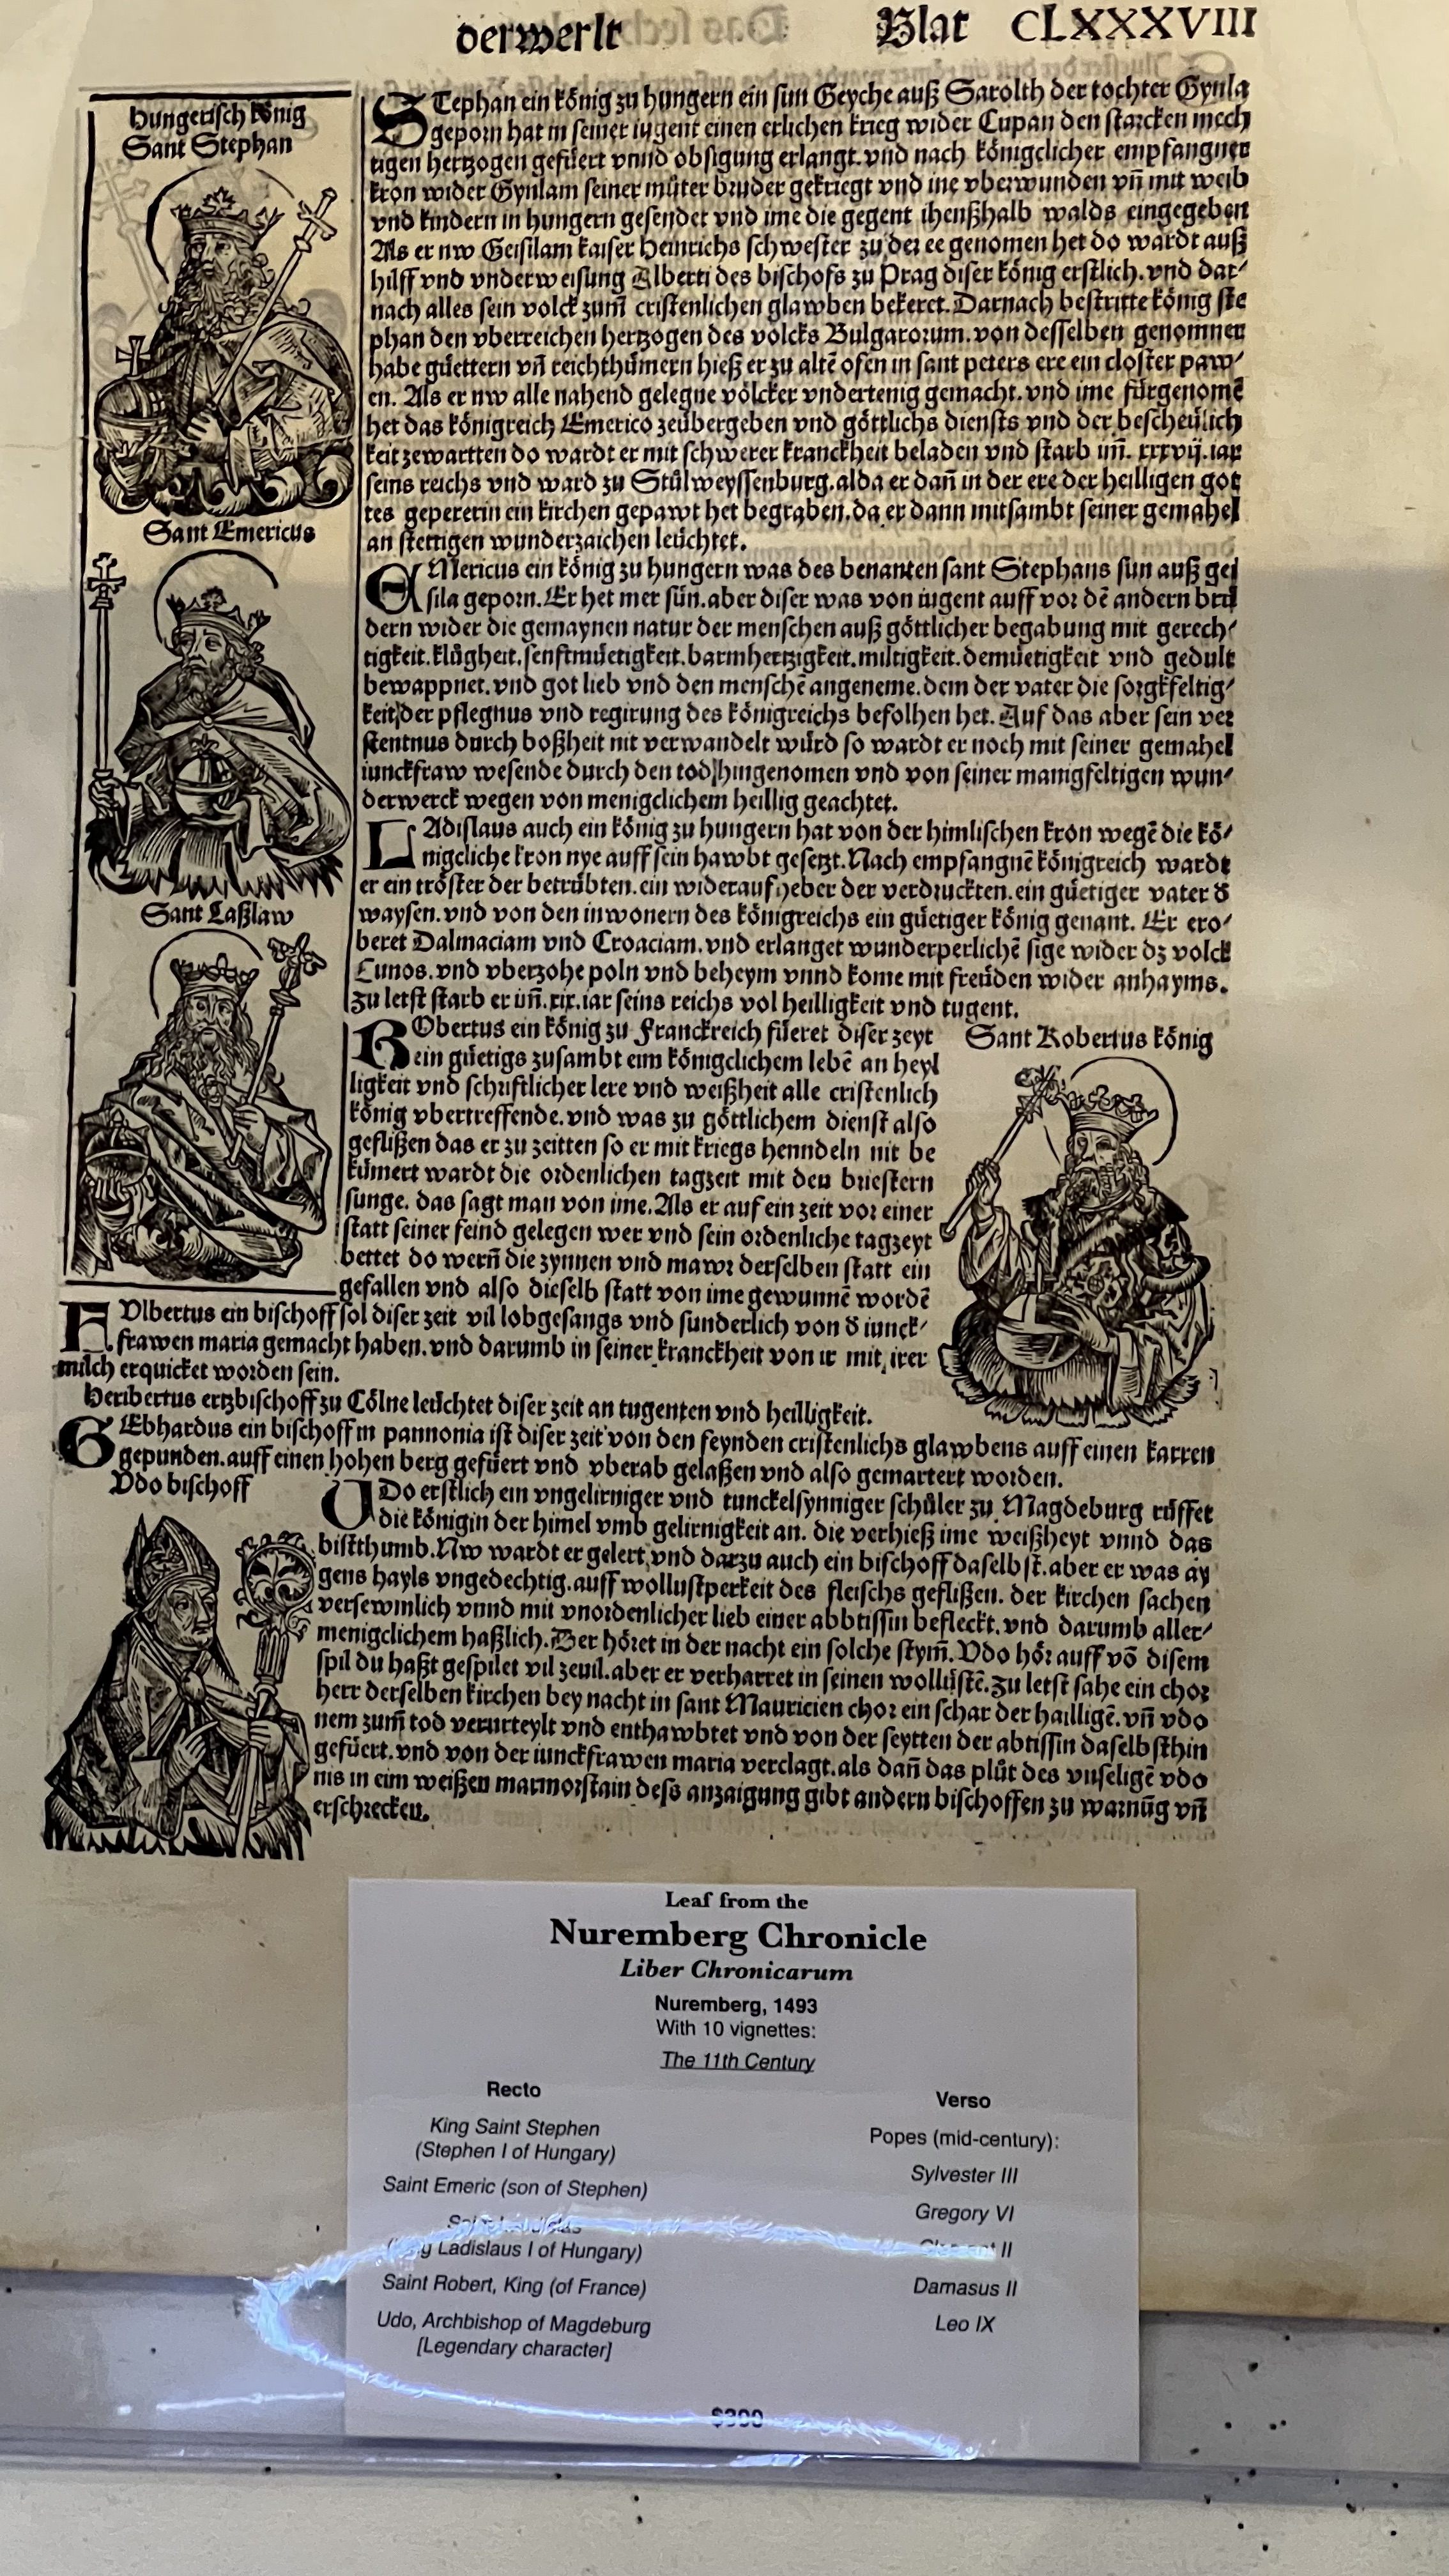 der werlt Blat CLXXXVIII
Hungerisch König
Sant Stephan
STephan ein König zu hungern ein sun Geyche auß Sarolth der tochter Gynla
geporn hat in seiner iugent einen erlichen krieg wider Cupan den starcken mech
tigen hertzogen gefüert vnnd obsigung erlangt. vnd nach königclicher empfangner
kron wider Gynlam seiner můter bruder gekriegt vnd ine vberwunden vñ mit weib
vnd kindern in hungern gesendet vnd ime die gegent ihenßhalb walds eingegeben
Als er nw Geisilam kaiser Heinrichs schwester zu der ee genomen het do wardt auß
hilff vnd vnderweisung Alberti des bischofs zu Prag diser könig erstlich. vnd dar-
nach alles sein volck zum̃ cristenlichen glawben bekeret. Darnach bestritte könig ste
phan den vberreichen hertzogen des volcks Bulgarorum. von desselben genomner
habe güettern vñ reichthümern hieß er zu altẽ ofen in sant peters ere ein closter paw-
en. Als er nw alle nahend gelegne völcker vndertenig gemacht. vnd ime fürgenomẽ
het das königreich Emerico zeübergeben vnd göttlichs diensts vnd der bescheülich
keit zewartten do wardt er mit schwerer kranckheit beladen vnd starb im̃. xxxvij. iar
seins reichs vnd ward zu Stůlweyssenburg. alda er dañ in der ere der heilligen got
tes gepererin ein kirchen gepawt het begraben. da er dann mitsambt seiner gemahel
an stettigen wunderzaichen leüchtet.
Sant Emericus
EMericus ein könig zu hungern was des benanten sant Stephans sun auß gei
sila geporn. Er het mer sün. aber diser was von iugent auff vor dẽ andern brü
dern wider die gemaynen natur der menschen auß göttlicher begabung mit gerech-
tigkeit. klůgheit. senftmüetigkeit. barmhertzigkeit. miltigkeit. demüetigkeit vnd gedult
bewappnet. vnd got lieb vnd den menschẽ angeneme. dem der vater die sorgkfeltig-
keit der pflegnus vnd regirung des königreichs befolhen het. Auf das aber sein ver
stentnus durch boßheit nit verwandelt würd so wardt er noch mit seiner gemahel
iunckfraw wesende durch den tod hingenomen vnd von seiner manigfeltigen wun-
derwerck wegen von menigclichem heillig geachtet.
Sant Laßlaw
LAdislaus auch ein könig zu hungern hat von der himlischen kron wegẽ die kö-
nigcliche kron nye auff sein hawbt gesetzt. Nach empfangnẽ königreich wardt
er ein tröster der betrübten. ein widerauf heber der verdruckten. ein güetiger vater d
waysen. vnd von den inwonern des königreichs ein güetiger könig genant. Er ero-
beret Dalmaciam vnd Croaciam. vnd erlanget wunderperlichẽ sige wider dz volck
Cunos. vnd vberzohe poln vnd beheym vnnd kome mit freüden wider anhayms.
Zu letst starb er im̃. xix. iar seins reichs vol heilligkeit vnd tugent.
RObertus ein könig zu Franckreich füeret diser zeyt
ein güetigs zusambt eim königclichem lebẽ an heyl
ligkeit vnd schriftlicher lere vnd weißheit alle cristenlich
könig vbertreffende. vnd was zu göttlichem dienst also
geflißen das er zu zeitten so er mit kriegs henndeln nit be
kümert wardt die ordenlichen tagzeit mit den briestern
sunge. das sagt man von ime. Als er auf ein zeit vor einer
statt seiner feind gelegen wer vnd sein ordenliche tagzeyt
bettet do wern̄ die zynnen vnd mawr derselben statt ein
gefallen vnd also dieselb statt von ime gewunnẽ wordẽ
Sant Robertus könig
FUlbertus ein bischoff sol diser zeit vil lobgesangs vnd sunderlich von d iunck-
frawen maria gemacht haben. vnd darumb in seiner kranckheit von ir mit irer
milch erquicket worden sein.
Heribertus ertzbischoff zu Cölne leüchtet diser zeit an tugenten vnd heilligkeit.
GEbhardus ein bischoff in pannonia ist diser zeit von den feynden cristenlichs glawbens auff einen karren
gepunden. auff einen hohen berg gefüert vnd vberab gelaßen vnd also gemartert worden.
Vdo bischoff
UDo erstlich ein vngelirniger vnd tunckelsynniger schůler zu Magdeburg rüffet
die königin der himel vmb gelirnigkeit an. die verhieß ime weißheyt vnnd das
bistthumb. Nw wardt er gelert vnd darzu auch ein bischoff daselbst. aber er was ay
gens hayls vngedechtig. auff wollustperkeit des fleischs geflißen. der kirchen sachen
versewmlich vnnd mit vnordenlicher lieb einer abbtissin befleckt. vnd darumb aller-
menigclichem haßlich. Der höret in der nacht ein solche stym̃. Vdo hör auff võ disem
spil du haßt gespilet vil zeuil. aber er verharret in seinen wollüstẽ. Zu letst sahe ein chor
herr derselben kirchen bey nacht in sant Mauricien chor ein schar der hailligẽ. vñ vdo
nem zum̃ tod verurteylt vnd enthawbtet vnd von der seytten der abtissin daselbsthin
gefüert. vnd von der iunckfrawen maria verclagt. als dañ das plůt des vnseligẽ vdo
nis in eim weißen marmorstain dess anzaigung gibt andern bischoffen zu warnũg vñ
erschrecken.
Leaf from the
Nuremberg Chronicle
Liber Chronicarum
Nuremberg, 1493
With 10 vignettes:
The 11th Century
Recto
King Saint Stephen
(Stephen I of Hungary)
Saint Emeric (son of Stephen)
Saint Ladislas
(King Ladislaus I of Hungary)
Saint Robert, King (of France)
Udo, Archbishop of Magdeburg
[Legendary character]
Verso
Popes (mid-century):
Sylvester III
Gregory VI
Clement II
Damasus II
Leo IX
$300